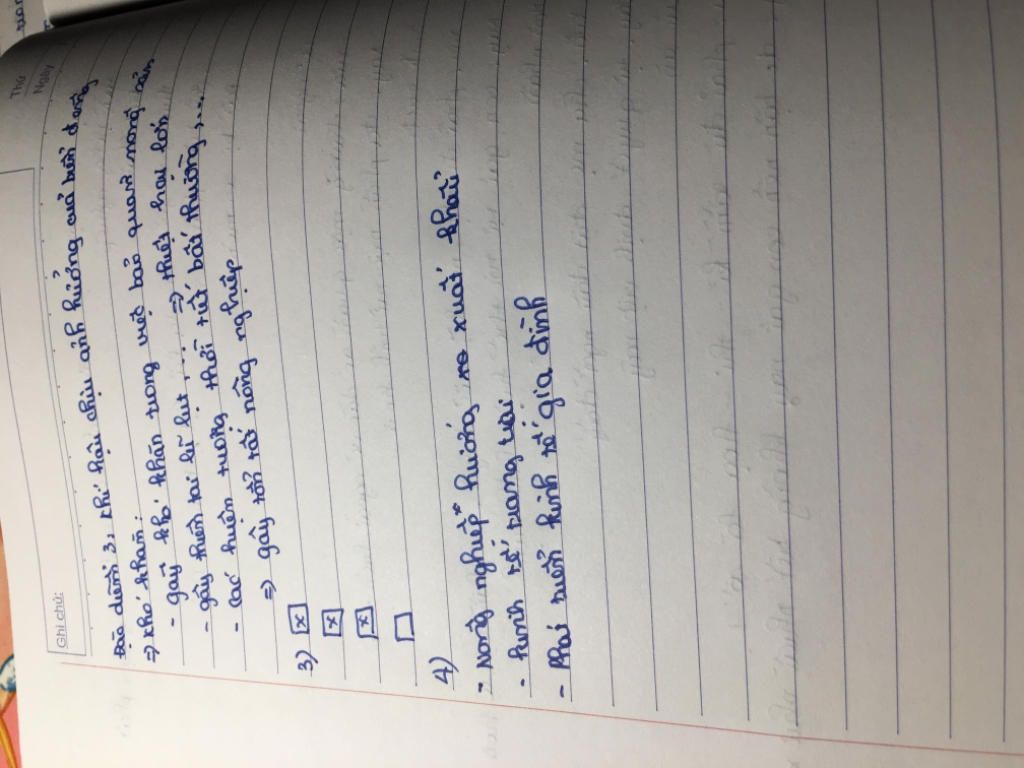 Thứ
Ngày
Ghi chú:
Đặc điểm 3, khí hậu chịu ảnh hưởng của biển đông
⇒ khó khăn:
- gây khó khăn trong việc bảo quản nong sản
- gây thiên tai lũ lụt, ... ⇒ thiệt hại lớn
- các hiện tượng thời tiết bất thường, ...
⇒ gây tổn tại nông nghiệp
3) x
x
x
4)
- Nông nghiệp hướng xuất khẩu
- kinh tế trang trại
- Phát triển kinh tế gia đình